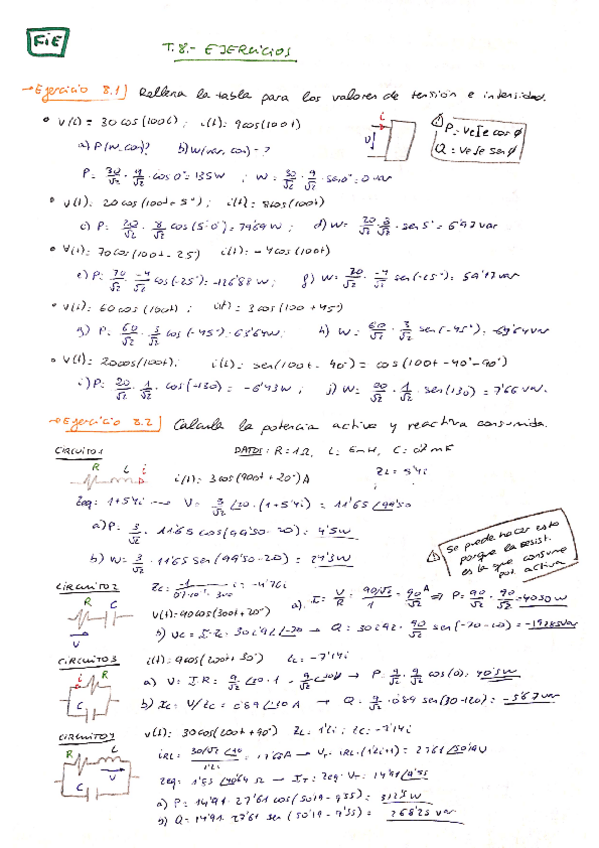 FiE
T.8.- EJERCICIOS
→Ejercicio 8.1) Rellena la tabla para los valores de tensión e intensidad.
• v(t) = 30 cos(100t) ; i(t): 9cos(100t)
a) P(w, cos)? b) W(var, cos) = ?
i
v
P = VeIe cos ø
Q = VeIe sen ø
P: 30/√2 · 9/√2 · cos 0 = 135W ; W = 30/√2 · 9/√2 · sen 0 = 0 var
• v(t): 20 cos(100t + 5°) ; i(t): 8cos(100t)
c) P: 20/√2 · 8/√2 cos(5-0) = 79'69 W ; d) W = 20/√2 · 8/√2 · sen 5° = 6'97 var
• V(t): 70 cos(100t - 25°) i(t): -4cos(100t)
e) P: 70/√2 · -4/√2 cos(-25°) = -126'88 W ; f) W = 70/√2 · -4/√2 sen(-25°) = 59'17 var
• v(t): 60 cos(100t) ; i(t) = 3 cos(100 + 45°)
g) P: 60/√2 · 3/√2 cos(-45°) = 63'64 W ; h) W = 60/√2 · 3/√2 sen(-45°) = -63'64 var
• V(t): 20cos(100t) ; i(t): sen(100t - 40°) = cos(100t - 40° - 90°)
i) P: 20/√2 · 1/√2 · cos(-130) = -6'43W ; j) W: 20/√2 · 1/√2 · sen(130) = 7'66 var.
→Ejercicio 8.2) Calcula la potencia activa y reactiva consumida.
CIRCUITO 1 DATOS: R = 1Ω, L: 6mH, C:
R L i
i(t): 3cos(900t + 20°) A ZL = 5'4i
Zeq: 1+5'4i → V = 3/√2 ∠20 · (1+5'4i) = 11'65 ∠99'50
a) P: 3/√2 · 11'65 cos(99'50 - 20°) = 4'5W
b) W = 3/√2 · 11'65 sen(99'50 - 20) = 24'3W
Se puede hacer esto
porque la resist.
es la que consume
pot. activa
CIRCUITO 2 i = -4'76i
R C
V
V(t): 90cos(300t + 20°)
a) I = V/R = 90/√2 / 1 = 90/√2 A ⇒ P = 90/√2 · 90/√2 = 4050 W
CIRCUITO 3 i(t): 9cos(200t + 30°) Zc = -7'14i
i R
C
a) V = I·R = 9/√2
P = 9/√2 · 9/√2 cos(0) = 40'5W
b) Ic = V/Zc = 0'89 A → Q = 9/√2 · 0'89 sen(30-120) = -5'67 var
CIRCUITO 4 V(t): 30cos(200t + 90°) ZL: 1'2i ; Zc = -7'14i
R L
V
C
a) P: 14'91 · 27'61 cos(50'19 - 9'55) = 312'5 W
b) Q = 14'91 · 27'61 sen(50'19 - 9'55) = 268'25 var